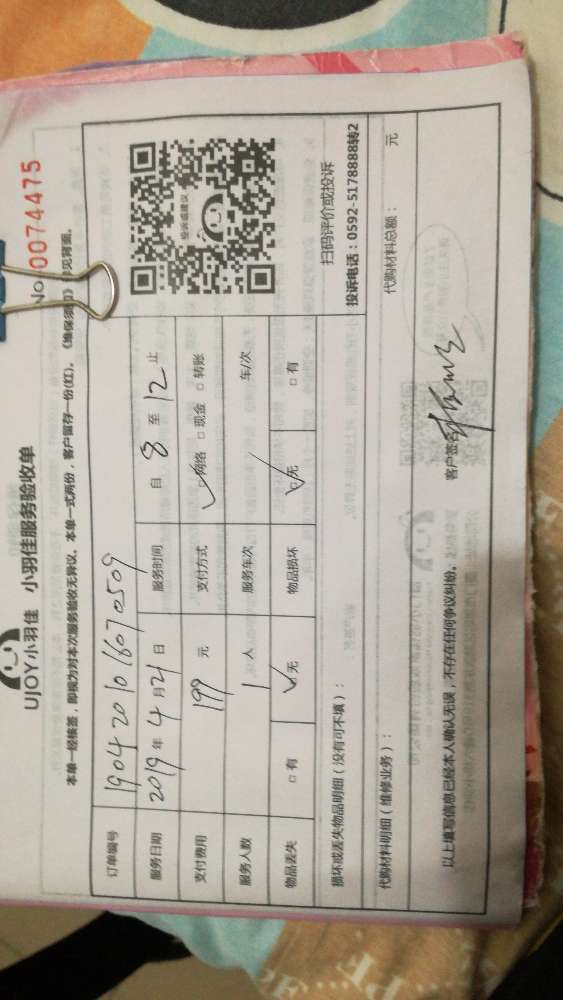 UJOY小羽佳 小羽佳服务验收单
No. 0074475
本单一经核签，即视为对本次服务验收无异议。本单一式两份，客户留存一份(红)。《维保须知》见背面。
订单编号 190420101607 0509
服务日期 2019年4月21日 服务时间 自 8 至 12 止
支付费用 199 元 支付方式 ☑网络 □现金 □转账
服务人数 1 人 服务车次 / 车/次
物品丢失 □有 ☑无 物品损坏 ☑无 □有
投诉或建议
扫码评价或投诉
投诉电话：0592-5178888转2
损坏或丢失物品明细（没有可不填）：
代购材料明细（维修业务）： 代购材料总额： 元
以上填写信息已经本人确认无误，不存在任何争议纠纷。 客户签名